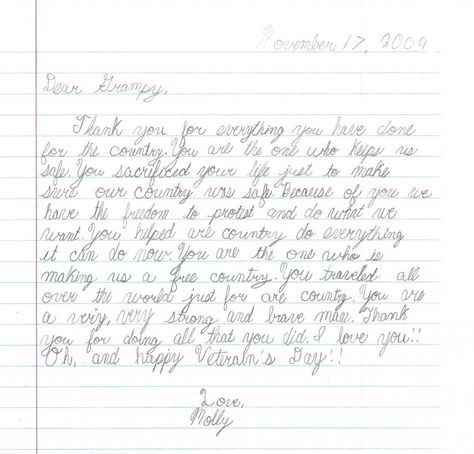 November 17, 2009
Dear Grampy,
Thank you for everything you have done
for the country. You are the one who keeps us
safe. You sacrificed your life just to make
sure our country was safe. Because of you we
have the freedom to protest and do what we
want. You helped are country do everything
it can do now. You are the one who is
making us a free country. You traveled all
over the world just for are country. You are
a very, very strong and brave man. Thank
you for doing all that you did. I love you!!
Oh, and happy Veterain's Day!!
Love,
Molly